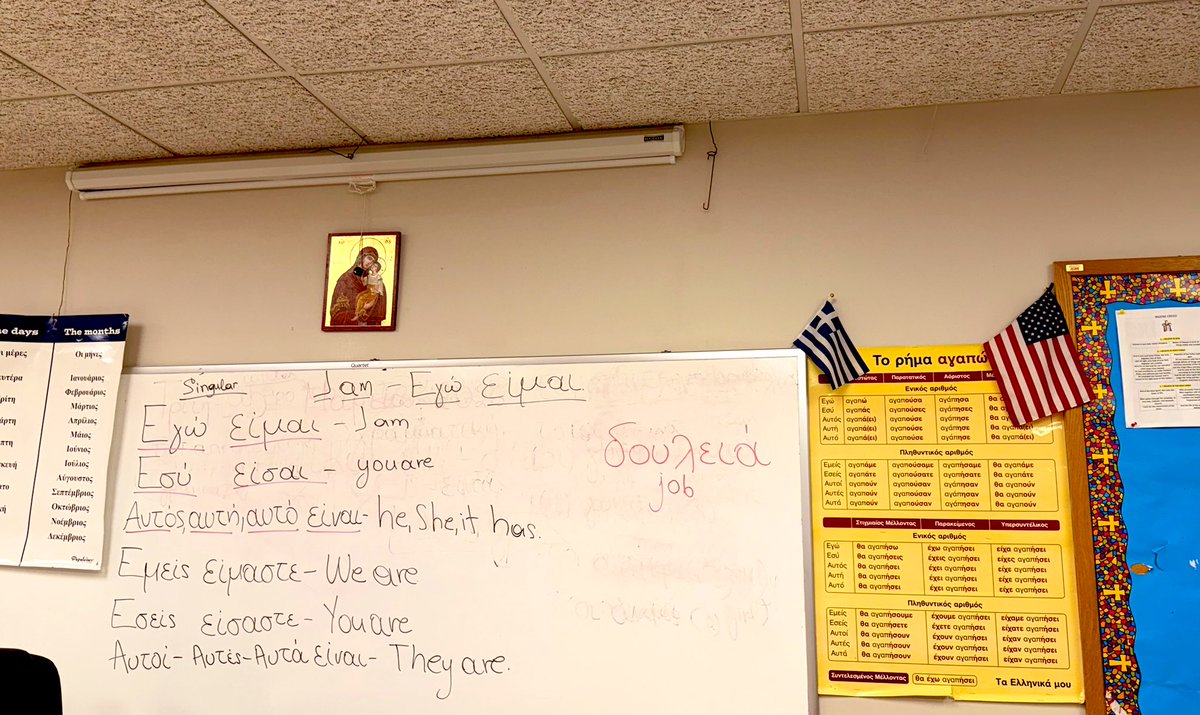 e days The months
ι μέρες Οι μήνες
Ιανουάριος
υτέρα Φεβρουάριος
ρίτη Μάρτιος
άρτη Απρίλιος
πτη Μάιος
Ιούνιος
σκευή Ιούλιος
ατο Αύγουστος
Σεπτέμβριος
κή Οκτώβριος
Νοέμβριος
Δεκέμβριος
Quartet
Singular I am - Εγώ είμαι
Εγώ είμαι - I am
Εσύ είσαι - you are
Αυτός, αυτή, αυτό είναι - he, She, it, has.
Εμείς είμαστε - We are
Εσείς είσαστε - You are
Αυτοί - Αυτές - Αυτά είναι - They are.
δουλειά
job
Το ρήμα αγαπώ
Παρατατικός Αόριστος
Ενικός αριθμός
Εγώ αγαπώ αγαπούσα αγάπησα θα
Εσύ αγαπάς αγαπούσες αγάπησες θα
Αυτός αγαπά(ει) αγαπούσε αγάπησε θα
Αυτή αγαπά(ει) αγαπούσε αγάπησε θα αγαπά(ει)
Αυτό αγαπά(ει) αγαπούσε αγάπησε θα αγαπά(ει)
Πληθυντικός αριθμός
Εμείς αγαπάμε αγαπούσαμε αγαπήσαμε θα αγαπάμε
Εσείς αγαπάτε αγαπούσατε αγαπήσατε θα αγαπάτε
Αυτοί αγαπούν αγαπούσαν αγάπησαν θα αγαπούν
Αυτές αγαπούν αγαπούσαν αγάπησαν θα αγαπούν
Αυτά αγαπούν αγαπούσαν αγάπησαν θα αγαπούν
Στιγμιαίος Μέλλοντας Παρακείμενος Υπερσυντέλικος
Ενικός αριθμός
Εγώ θα αγαπήσω έχω αγαπήσει είχα αγαπήσει
Εσύ θα αγαπήσεις έχεις αγαπήσει είχες αγαπήσει
Αυτός θα αγαπήσει έχει αγαπήσει είχε αγαπήσει
Αυτή θα αγαπήσει έχει αγαπήσει είχε αγαπήσει
Αυτό θα αγαπήσει έχει αγαπήσει είχε αγαπήσει
Πληθυντικός αριθμός
Εμείς θα αγαπήσουμε έχουμε αγαπήσει είχαμε αγαπήσει
Εσείς θα αγαπήσετε έχετε αγαπήσει είχατε αγαπήσει
Αυτοί θα αγαπήσουν έχουν αγαπήσει είχαν αγαπήσει
Αυτές θα αγαπήσουν έχουν αγαπήσει είχαν αγαπήσει
Αυτά θα αγαπήσουν έχουν αγαπήσει είχαν αγαπήσει
Συντελεσμένος Μέλλοντας θα έχω αγαπήσει Τα Ελληνικά μου